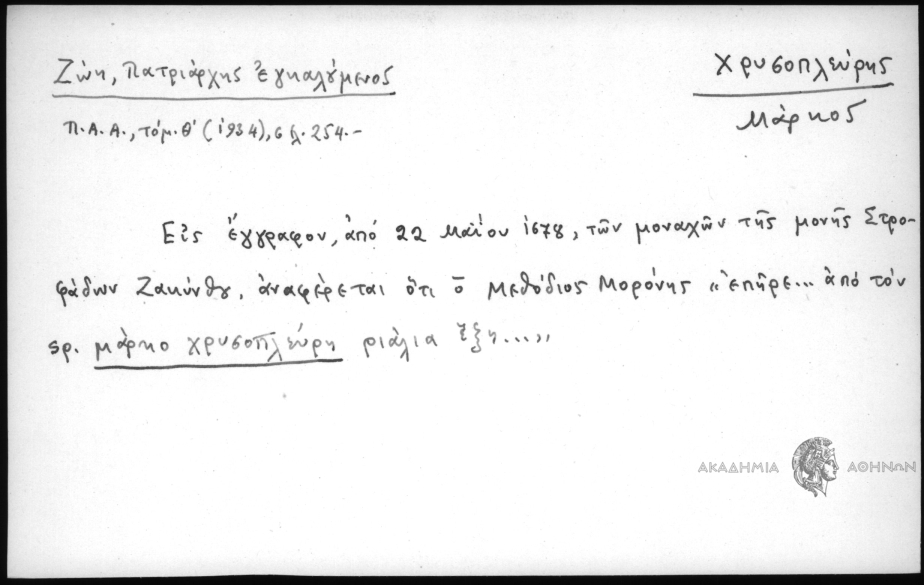 Ζώη, Πατριάρχης ἐγκαλούμενος
Χρυσοπλεύρης
Μάρκος
Π.Α.Α., τόμ. Θ' (1934), σελ. 254.-
Εἰς ἔγγραφον, ἀπό 22 Μαΐου 1678, τῶν μοναχῶν τῆς μονῆς Στρο-
φάδων Ζακύνθου, ἀναφέρεται ὅτι ὁ Μεθόδιος Μορόνης «ἐπῆρε... ἀπό τόν
sρ. μάρκο χρυσοπλεύρη ριάλια ἕξη...»
ΑΚΑΔΗΜΙΑ ΑΘΗΝΩΝ